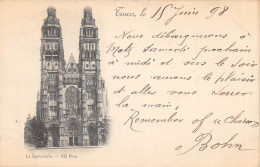 Tours, le 15 Juin 98
Nous débarquerons à
Metz samedi prochain
à midi et vous le soir
nous aurons le plaisir
et allez vous serrer
la main,
Remember of
à Bohn
La Cathédrale. - ND Phot.